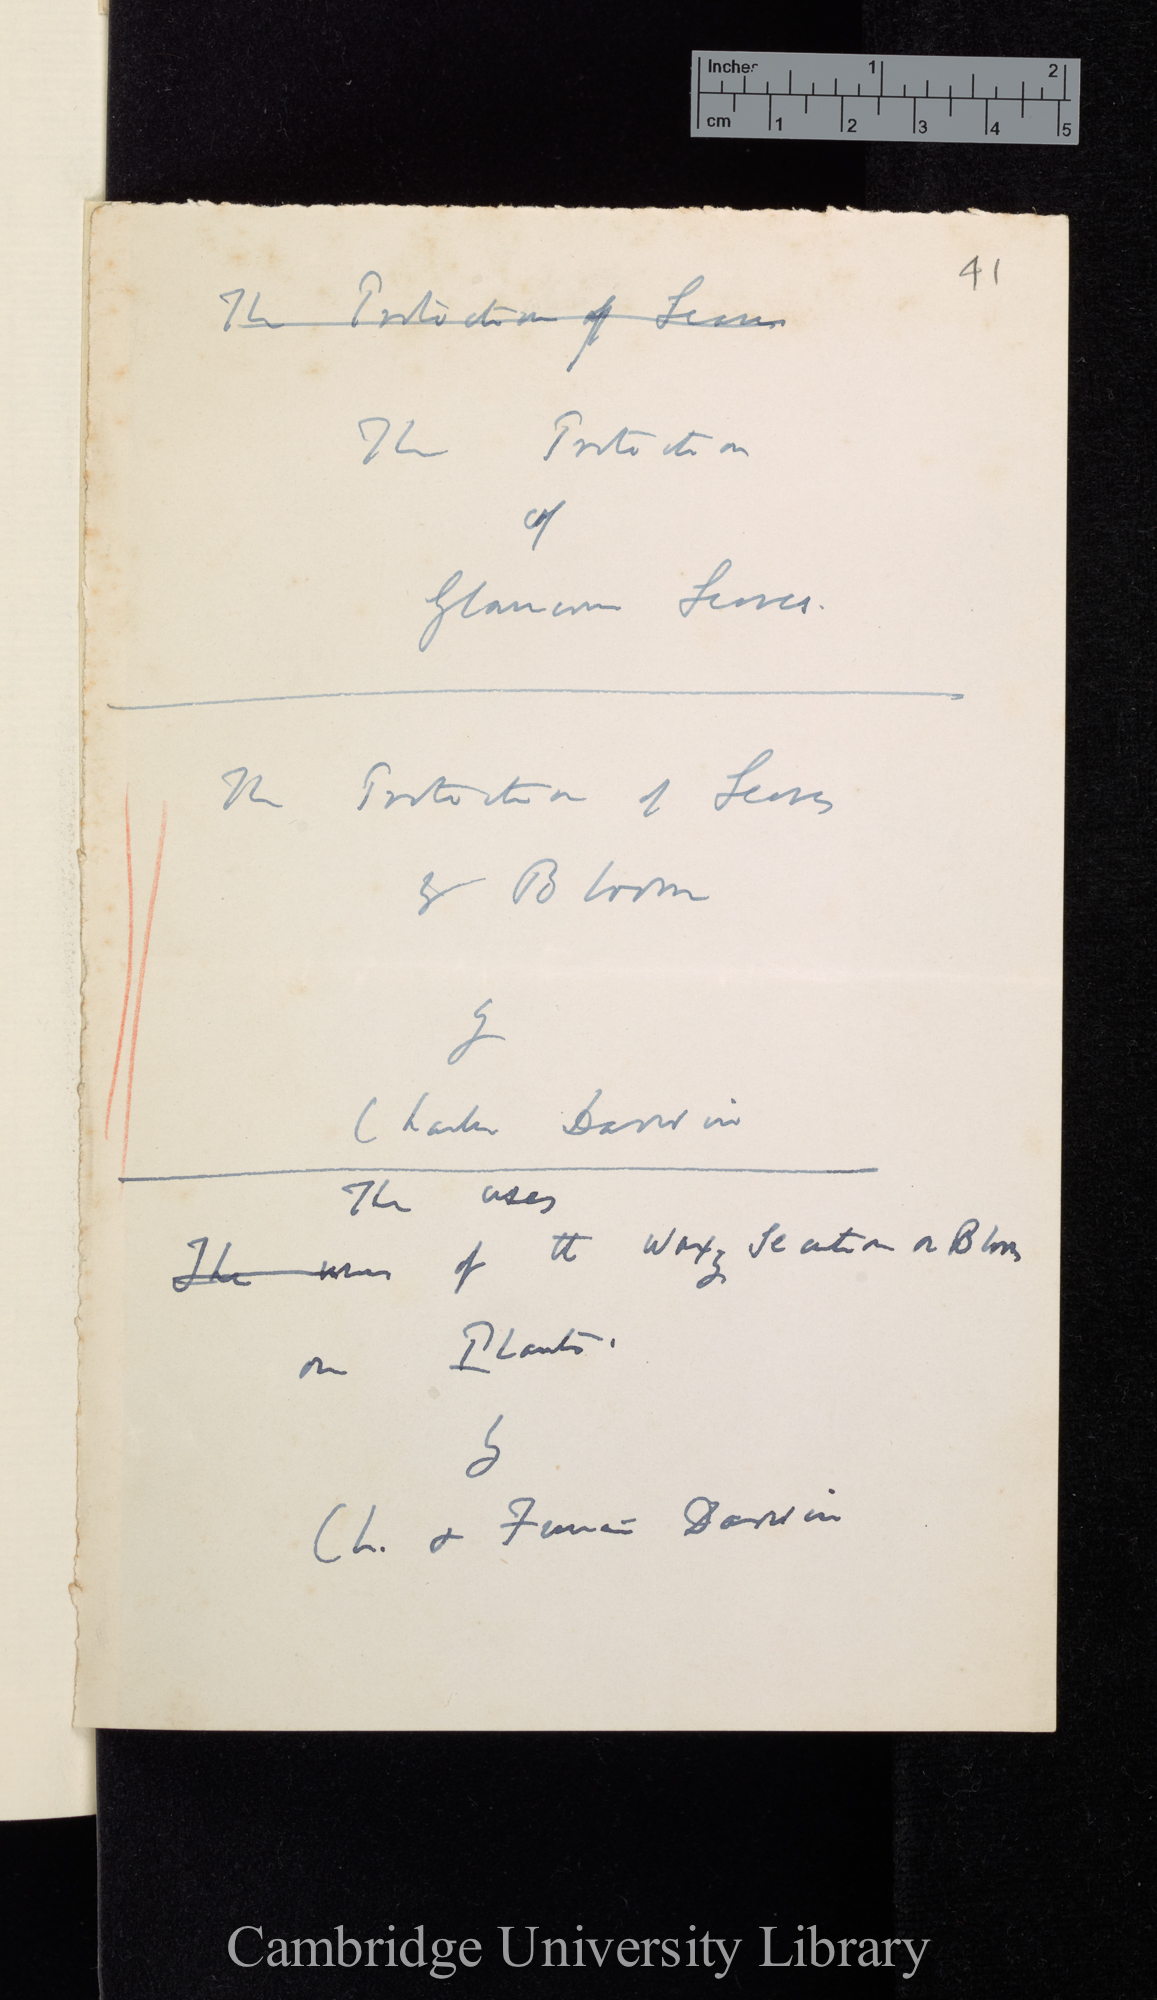 Inches 1 2
cm 1 2 3 4 5
41
The Protection of Leaves
The Protection
of
Glaucous Leaves.
The Protection of Leaves
by Bloom
by
Charles Darwin
The uses
The uses of the Waxy Secretion or Bloom
on Plants.
by
Ch. & Francis Darwin
Cambridge University Library